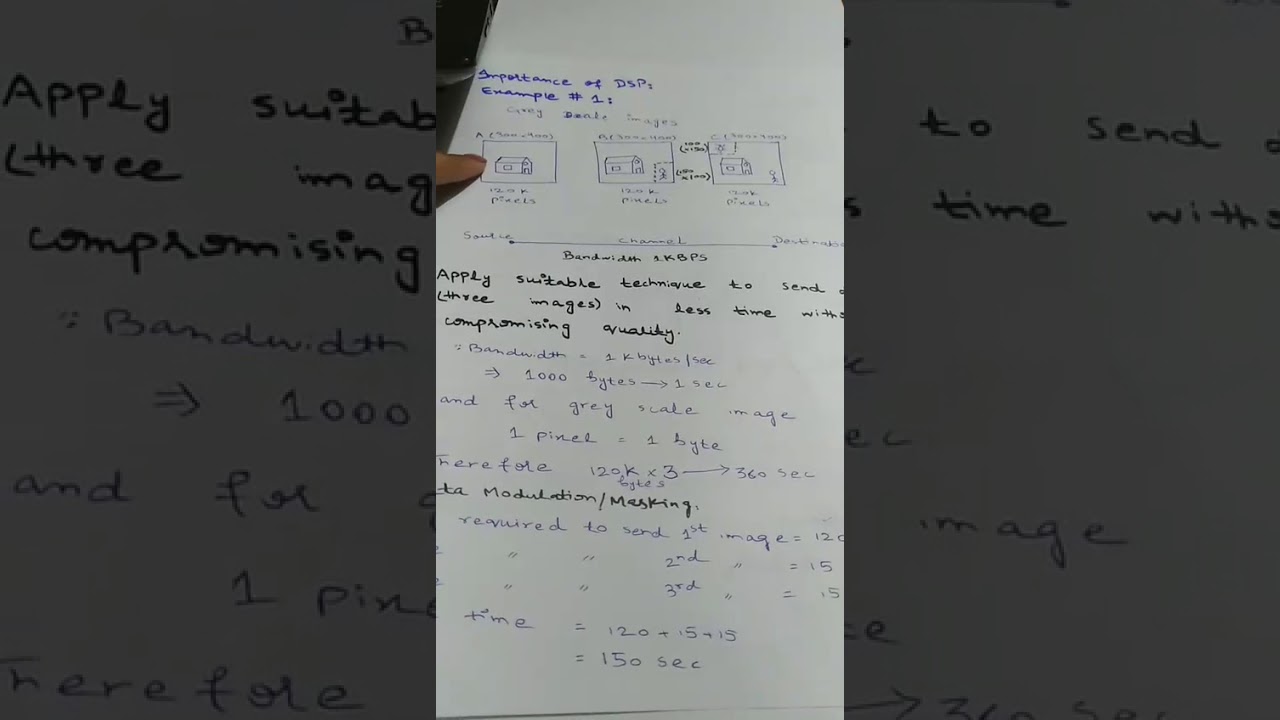 Importance of DSP:
Example # 1:
Grey Scale images
A (300×400) B (300×400) C (300×400)
(100×150)
(150×100)
120K pixels 120K pixels 120K pixels
Source channel Destinatio
Bandwidth 1KBPS
Apply suitable technique to send
(three images) in less time witho
compromising quality.
∵ Bandwidth = 1 Kbytes/sec
⇒ 1000 bytes → 1 sec
and for grey scale image
1 pixel = 1 byte
herefore 120K × 3 → 360 sec
bytes
ta Modulation/Masking.
required to send 1st image = 120
〃 〃 2nd 〃 = 15
〃 〃 3rd 〃 = 15
time = 120 + 15 + 15
= 150 sec